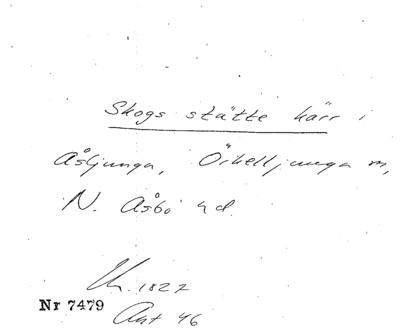 Skogs stätte kärr i
Åsljunga, Örkelljunga m,
N. Åsbo hd.
1827
Nr 7479
Ant 46